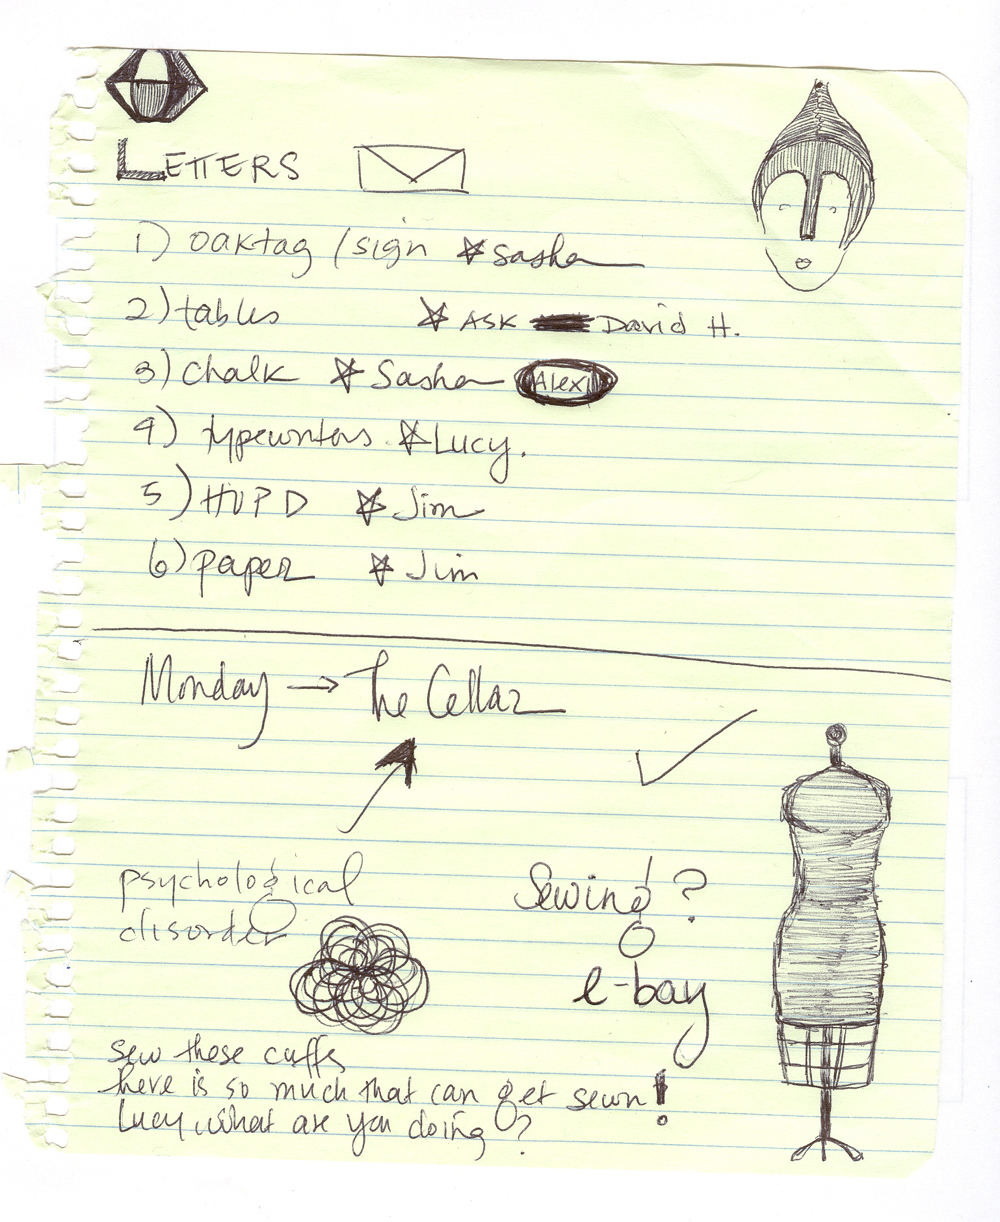 LETTERS
1) oaktag / sign ☆ Sasha
2) tables ☆ ASK David H.
3) chalk ☆ Sasha Alexi
4) typewriters ☆ Lucy.
5) HUPD ☆ Jim
6) paper ☆ Jim
Monday → The Cellar
psychological
disorder
Sewing?
e-bay
sew these cuffs
there is so much that can get sewn!
Lucy, what are you doing?